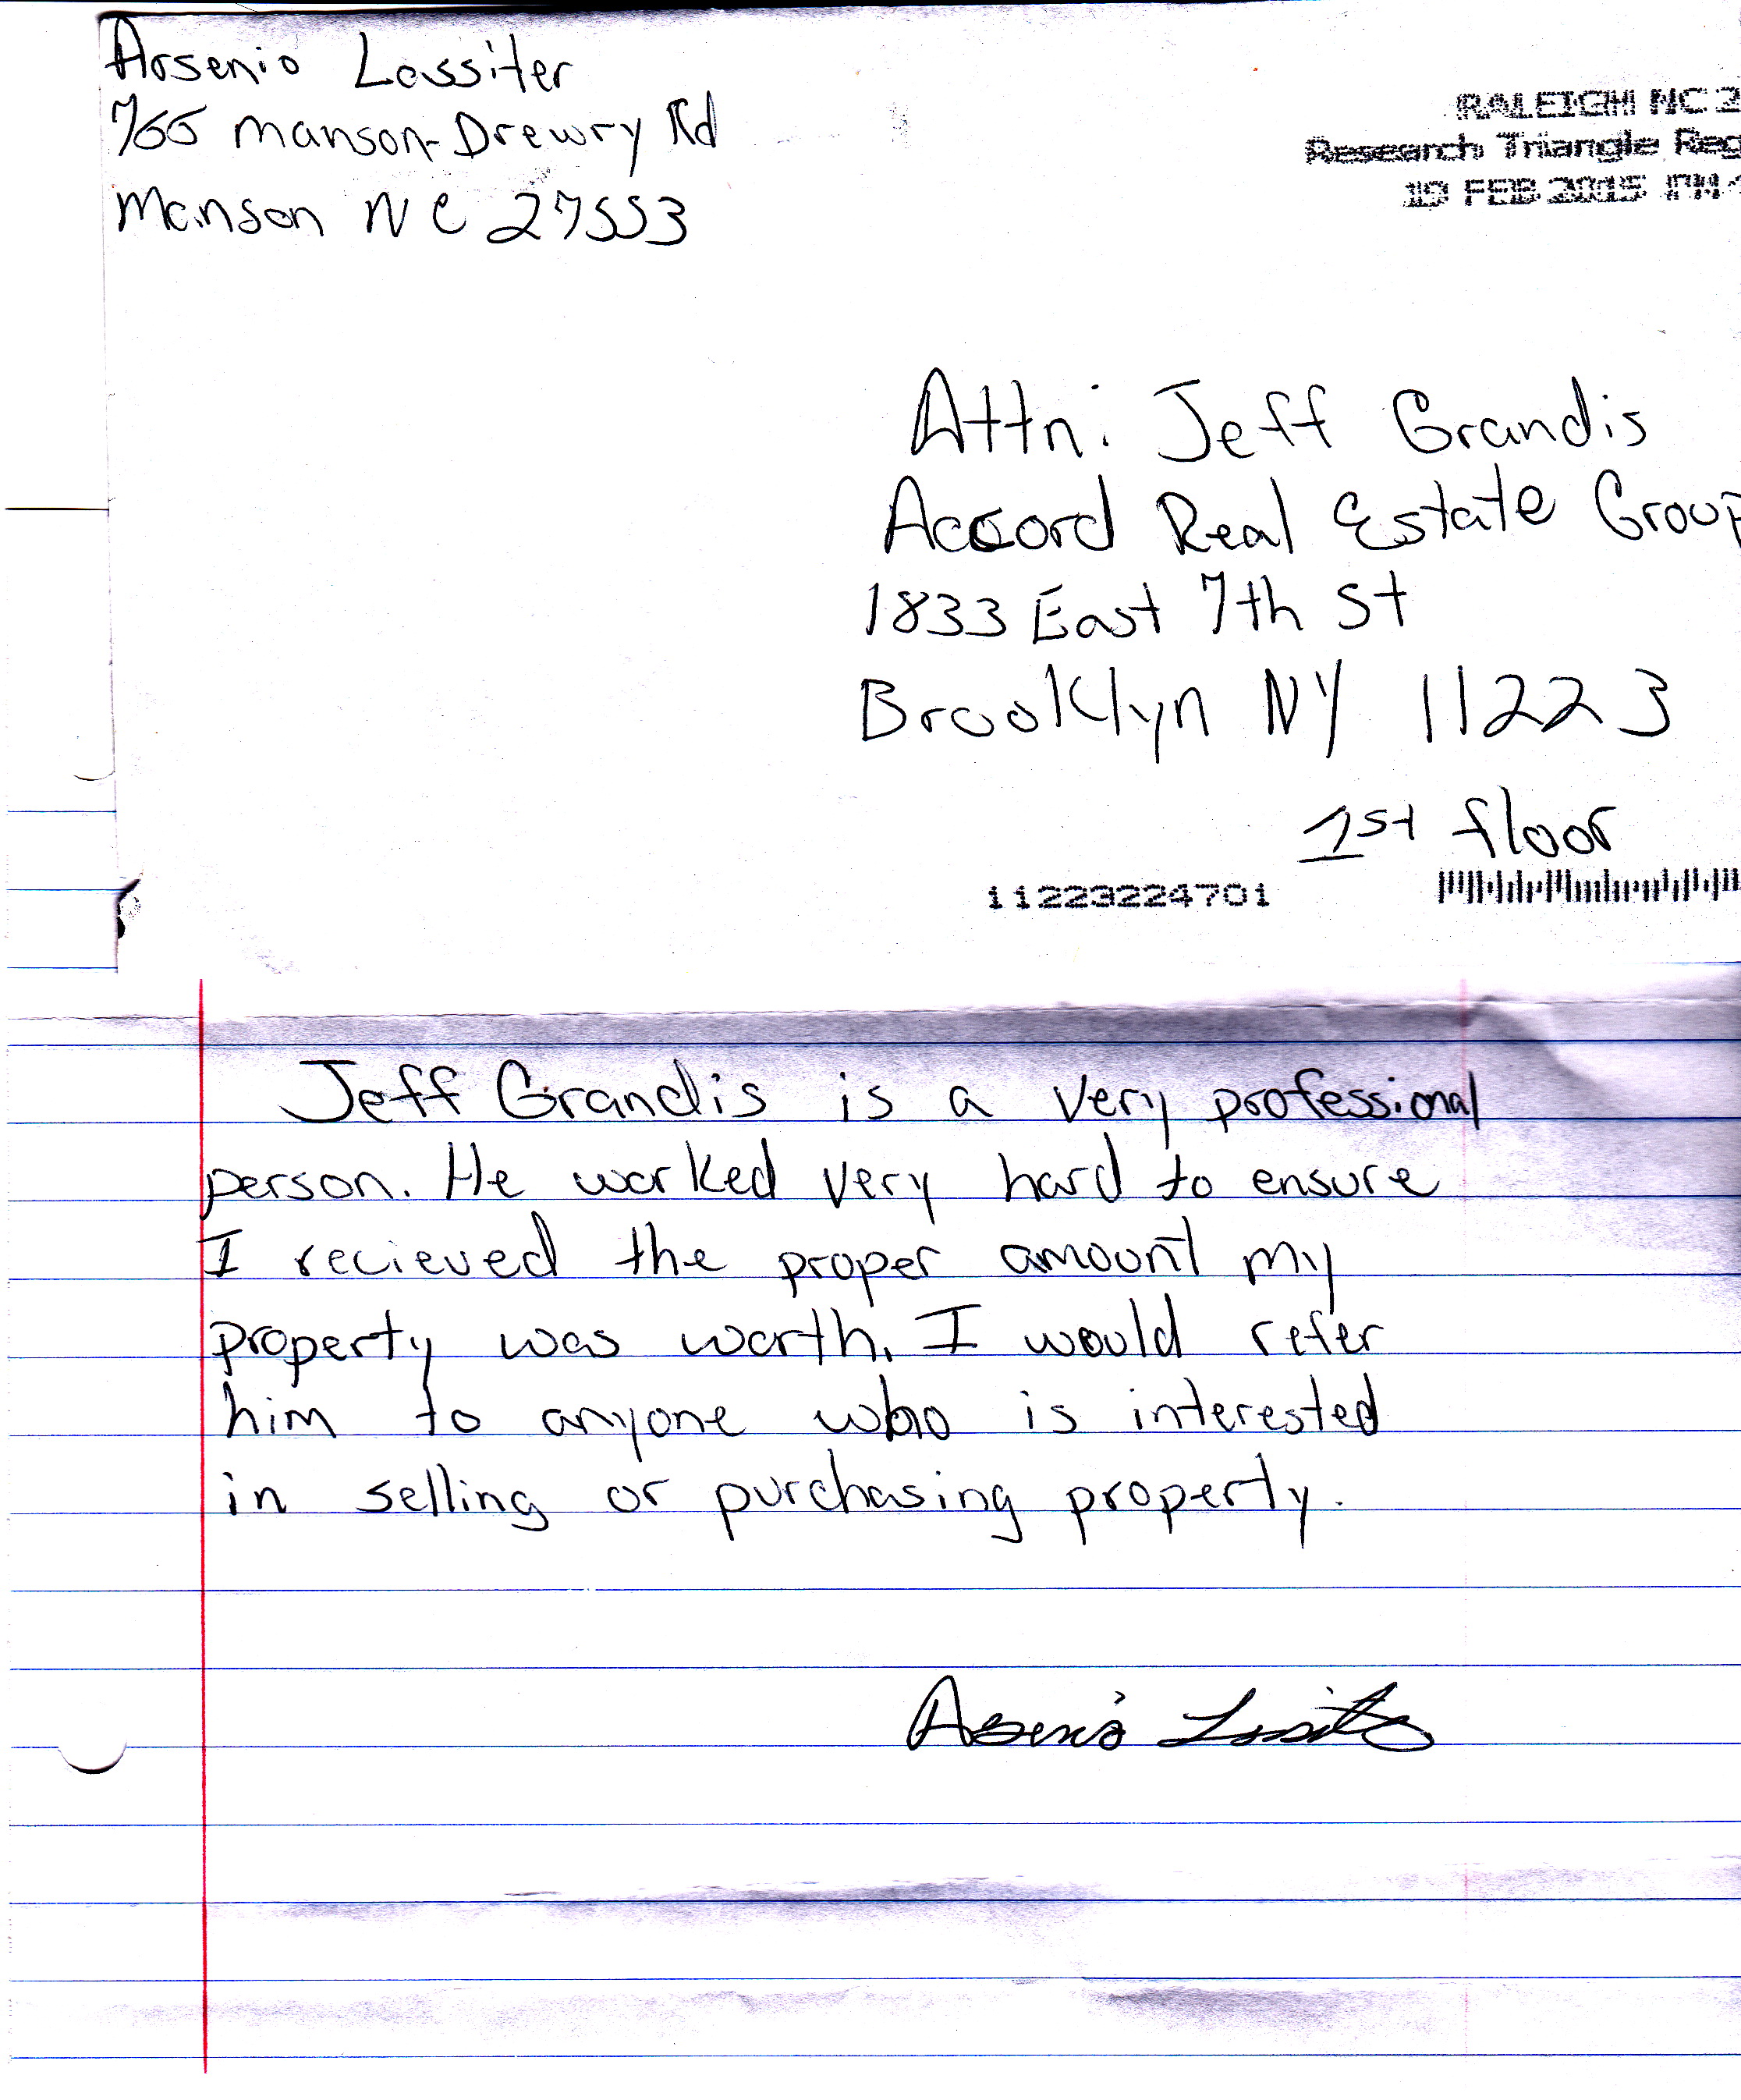 Arsenio Lassiter
766 Manson-Drewry Rd
Manson NC 27553
RALEIGH NC 2
Research Triangle Reg
19 FEB 2015 PM
Attn: Jeff Grandis
Accord Real Estate Group
1833 East 7th St
Brooklyn NY 11223
1st floor
11223224701
Jeff Grandis is a very professional
person. He worked very hard to ensure
I recieved the proper amount my
property was worth. I would refer
him to anyone who is interested
in selling or purchasing property.
Arsenio Lassiter